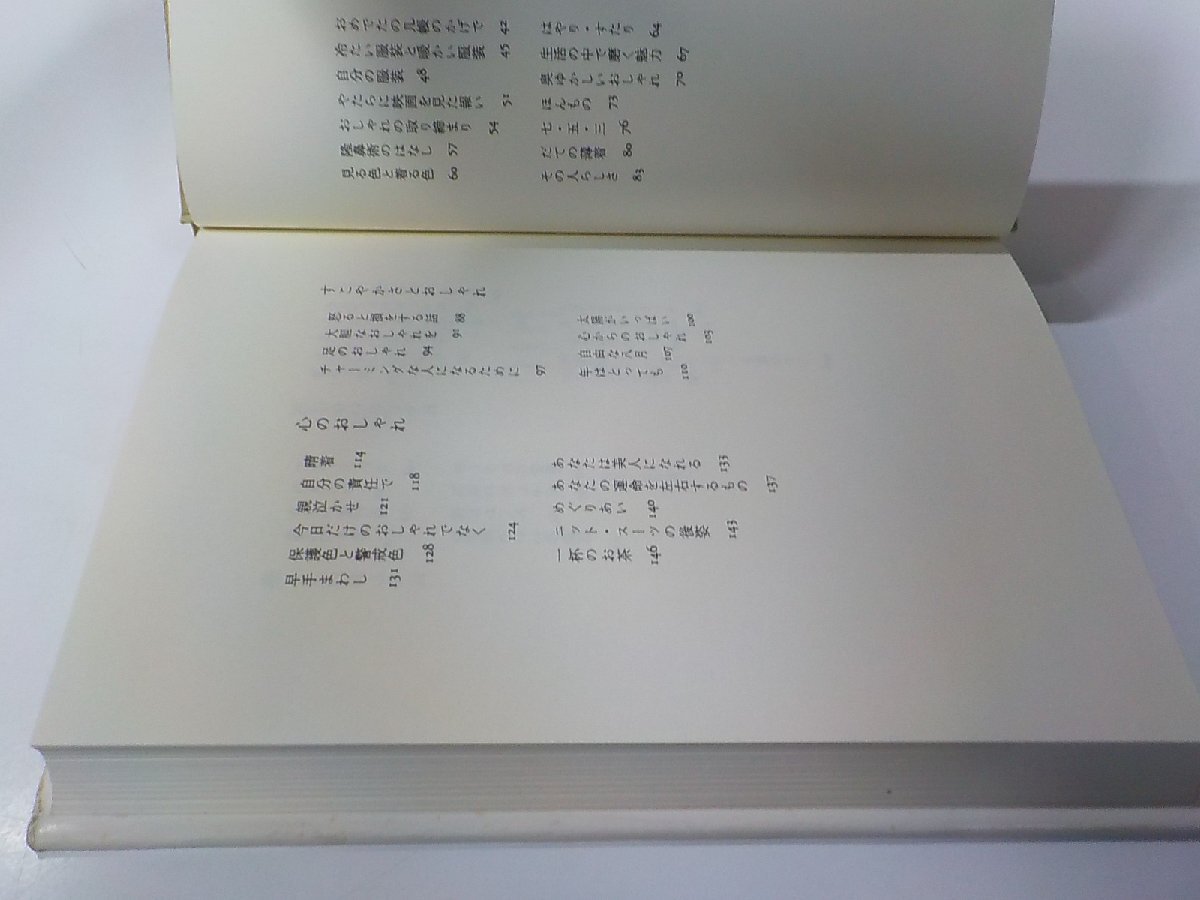 おめでたの几帳のかげで 42
冷たい服装と暖かい服装 45
自分の服装 48
やたらに映画を見た報い 51
おしゃれの取り締まり 54
隆鼻術のはなし 57
見る色と着る色 60
はやり・すたり 64
生活の中で磨く魅力 67
奥ゆかしいおしゃれ 70
ほんもの 73
七・五・三 76
だての薄着 80
その人らしさ 83
すこやかさとおしゃれ
怒ると損をする話 88
大胆なおしゃれを 91
足のおしゃれ 94
チャーミングな人になるために 97
太陽がいっぱい 100
心からのおしゃれ 103
自由な八月 107
年はとっても 110
心のおしゃれ
晴着 114
自分の責任で 118
親泣かせ 121
今日だけのおしゃれでなく 124
保護色と警戒色 128
早手まわし 131
あなたは美人になれる 133
あなたの運命を左右するもの 137
めぐりあい 140
ニット・スーツの後姿 143
一杯のお茶 146